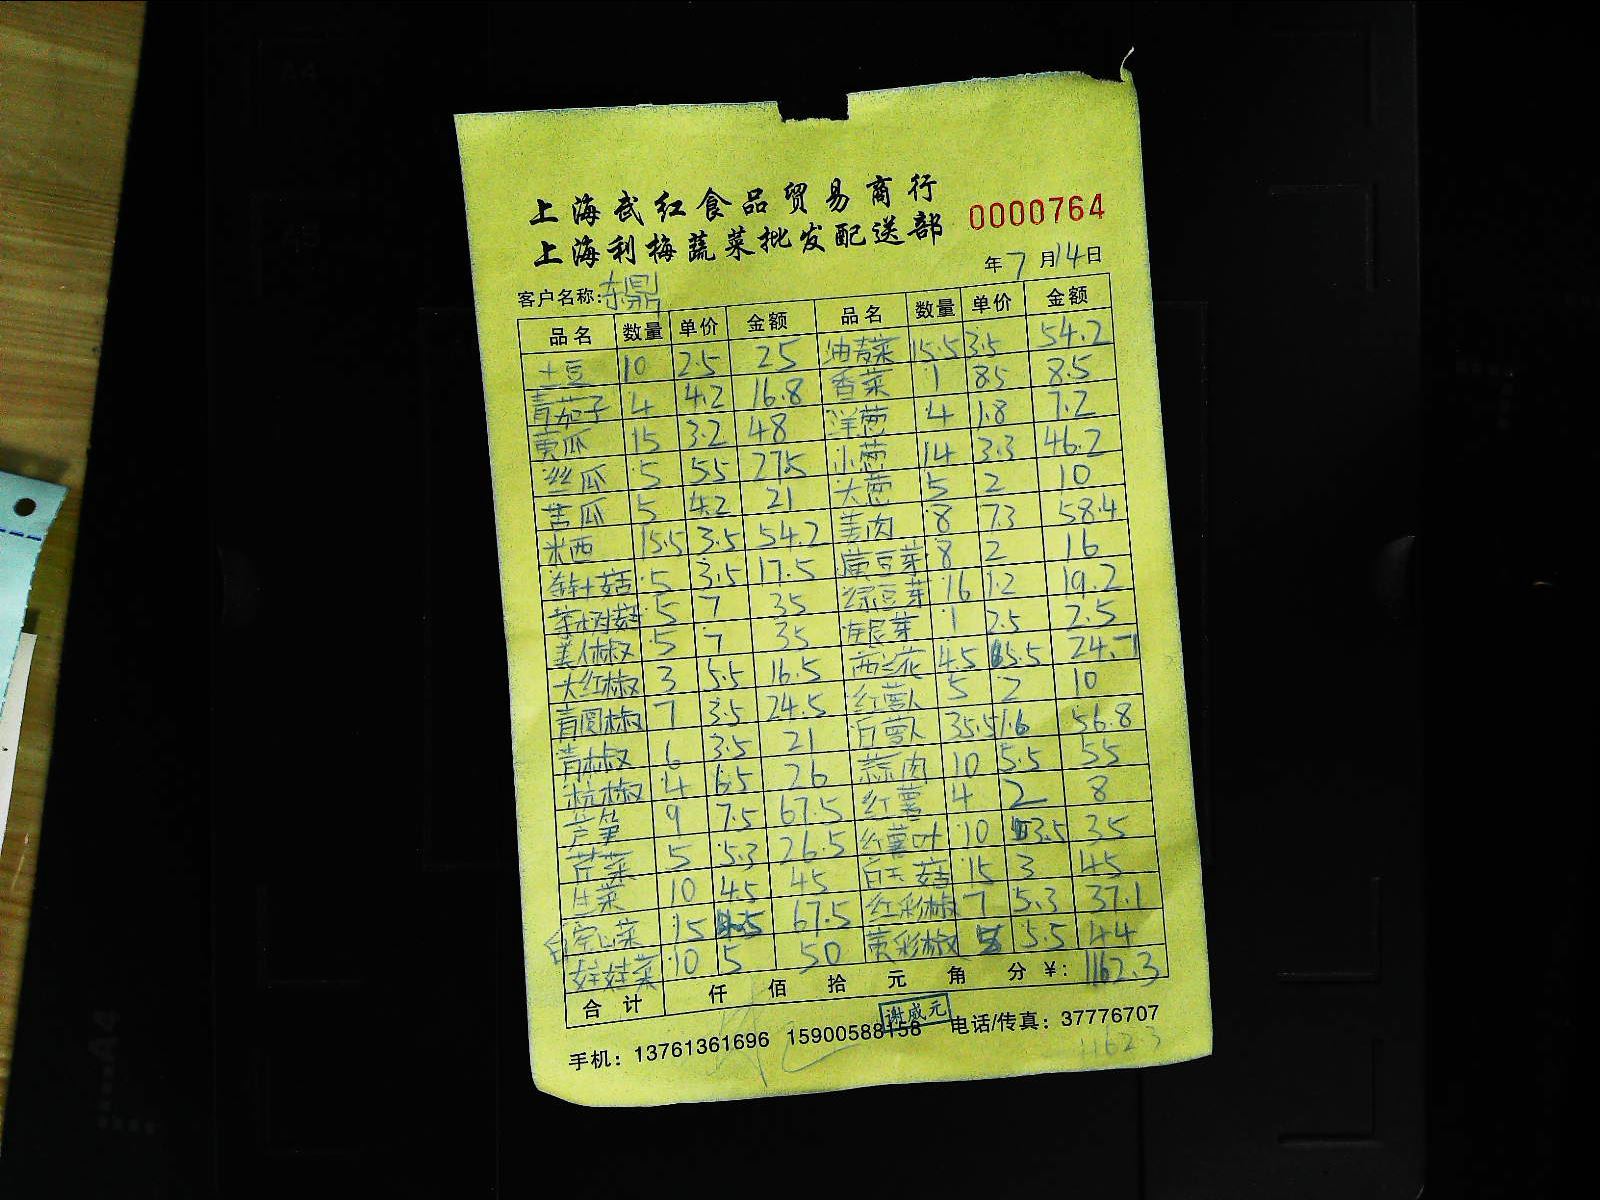 上海武红食品贸易商行
上海利梅蔬菜批发配送部
0000764
年7月14日
客户名称:东鼎
品名 数量 单价 金额 品名 数量 单价 金额
土豆 10 2.5 25 油麦菜 15.5 3.5 54.2
青茄子 4 4.2 16.8 香菜 1 8.5 8.5
黄瓜 15 3.2 48 洋葱 4 1.8 7.2
丝瓜 5 5.5 27.5 小葱 14 3.3 46.2
苦瓜 5 4.2 21 大葱 5 2 10
米西 15.5 3.5 54.2 姜肉 8 7.3 58.4
金针菇 5 3.5 17.5 黄豆芽 8 2 16
茶树菇 5 7 35 绿豆芽 16 1.2 19.2
美人椒 5 7 35 芽 1 2.5 2.5
大红椒 3 5.5 16.5 西兰花 4.5 5.5 24.7
青圆椒 7 3.5 24.5 红萝卜 5 2 10
青椒 6 3.5 21 白萝卜 35.5 1.6 56.8
杭椒 4 6.5 26 蒜肉 10 5.5 55
芦笋 9 7.5 67.5 红薯 4 2 8
芹菜 5 5.3 26.5 红薯叶 10 3.5 35
生菜 10 4.5 45 白玉菇 15 3 45
空心菜 15 4.5 67.5 红彩椒 7 5.3 37.1
娃娃菜 10 5 50 黄彩椒 8 5.5 44
合计 仟 佰 拾 元 角 分 ¥: 1162.3
谢咸元
手机: 13761361696 15900588158 电话/传真: 37776707
1162.3